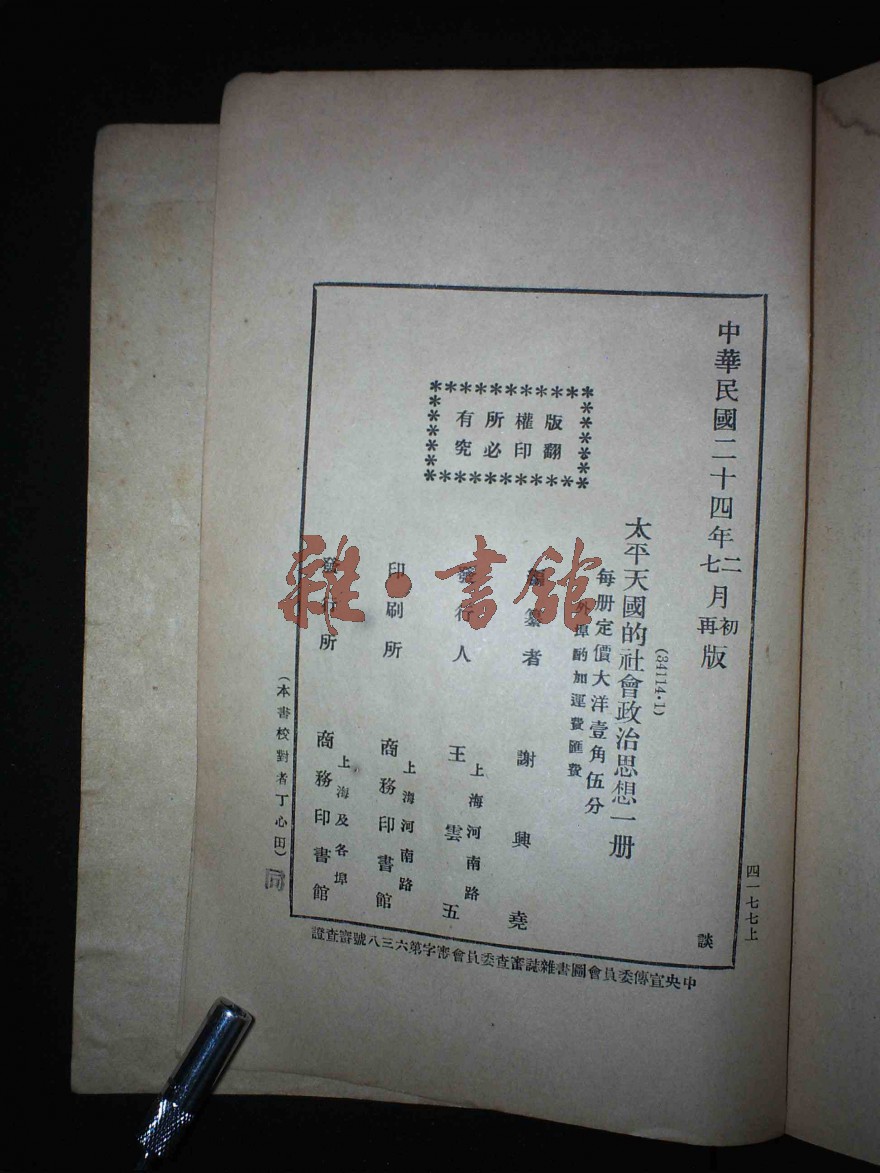 中華民國二十四年二月初版
七 再
四一七七上
(34114·1)
太平天國的社會政治思想一册
每册定價大洋壹角伍分
外埠酌加運費匯費
版權所有
翻印必究
編纂者 謝興堯
上海河南路
發行人 王雲五
上海河南路
印刷所 商務印書館
上海及各埠
發行所 商務印書館
(本書校對者丁心田)
談
中央宣傳委員會圖書雜誌審查委員會審字第六三八號審查證
雜·書館